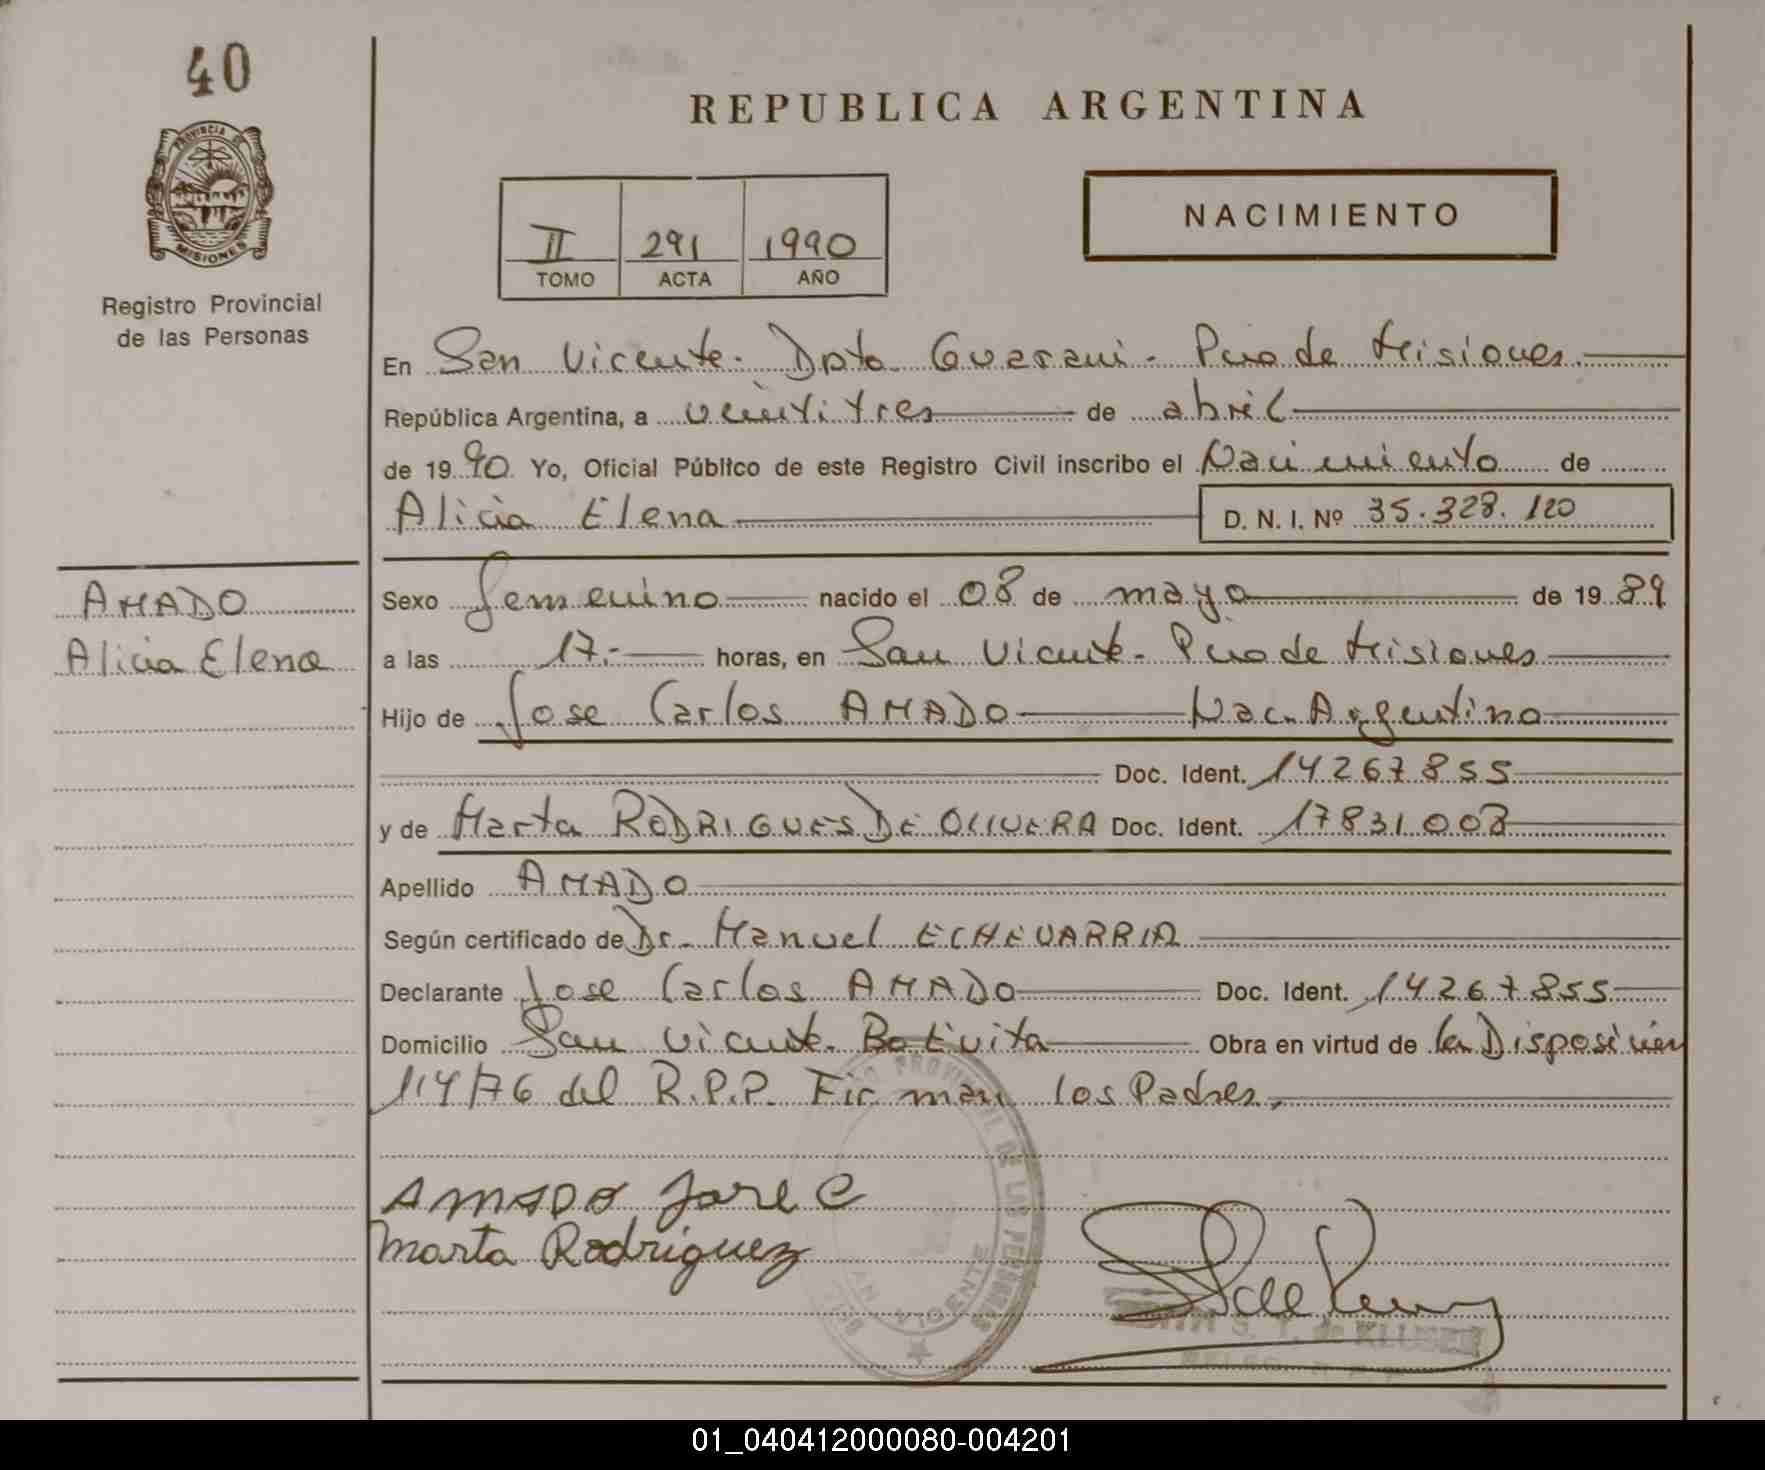 40
PROVINCIA DE
MISIONES
Registro Provincial
de las Personas
AMADO
Alicia Elena
REPUBLICA ARGENTINA
II 291 1990
TOMO ACTA AÑO
NACIMIENTO
En San Vicente. Dpto Guarani - Pcia de Misiones.
República Argentina, a veintitres de abril
de 1990. Yo, Oficial Público de este Registro Civil inscribo el Nacimiento de
Alicia Elena D. N. I. Nº 35.328.120
Sexo femenino nacido el 08 de mayo de 1989
a las 17.- horas, en San Vicente - Pcia de Misiones
Hijo de Jose Carlos AMADO Nac. Argentino
Doc. Ident. 14267855
y de Marta RODRIGUES DE OLIVERA Doc. Ident. 17831008
Apellido AMADO
Según certificado de Dr. Manuel ECHEVARRIA
Declarante Jose Carlos AMADO Doc. Ident. 14267855
Domicilio San Vicente. Obra en virtud de la Disposicion
114/76 del R.P.P. Firman los Padres.
AMADO Jose C
Marta Rodriguez
PROVINCIAL DE LAS PERSONAS
SAN VICENTE
S. T. de KLUSEN
01_040412000080-004201